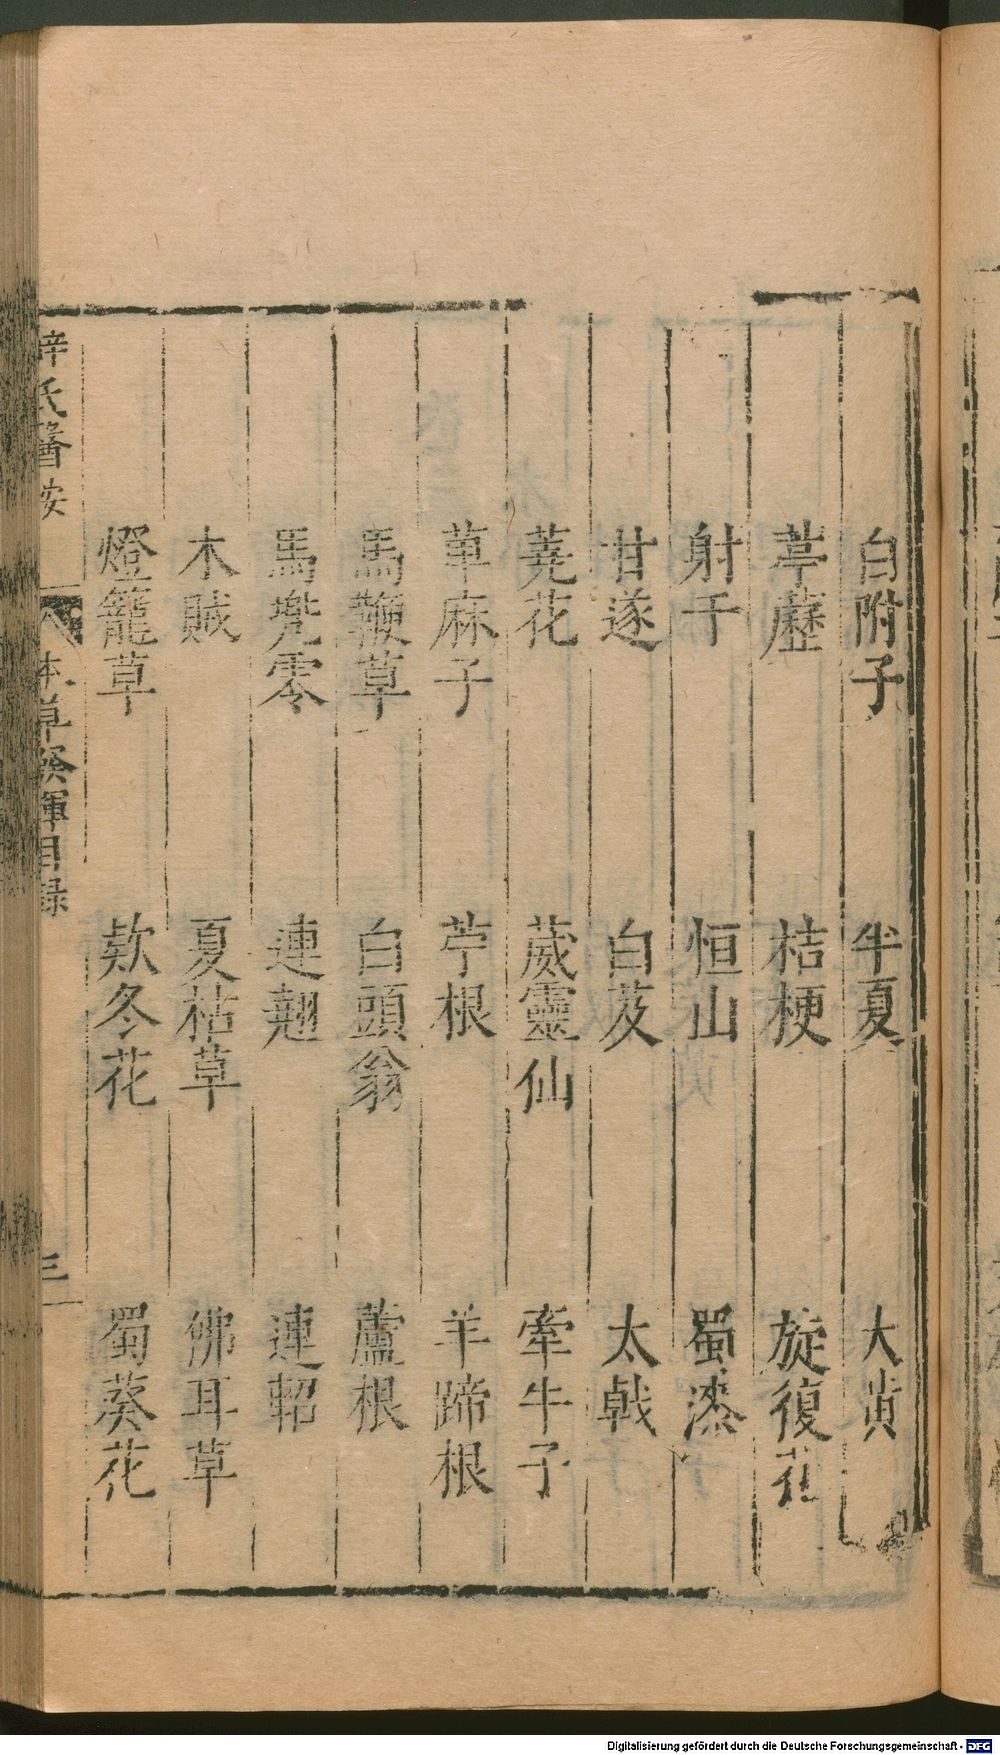 白附子 半夏 大黃
葶藶 桔梗 旋復花
射干 恒山 蜀漆
甘遂 白芨 太戟
蕘花 葳靈仙 牽牛子
萆麻子 苧根 羊蹄根
馬鞭草 白頭翁 蘆根
馬兠零 連翹 連軺
木賊 夏枯草 佛耳草
燈籠草 欵冬花 蜀葵花
薛氏醫按 本草發揮目錄 三
Digitalisierung gefördert durch die Deutsche Forschungsgemeinschaft - DFG